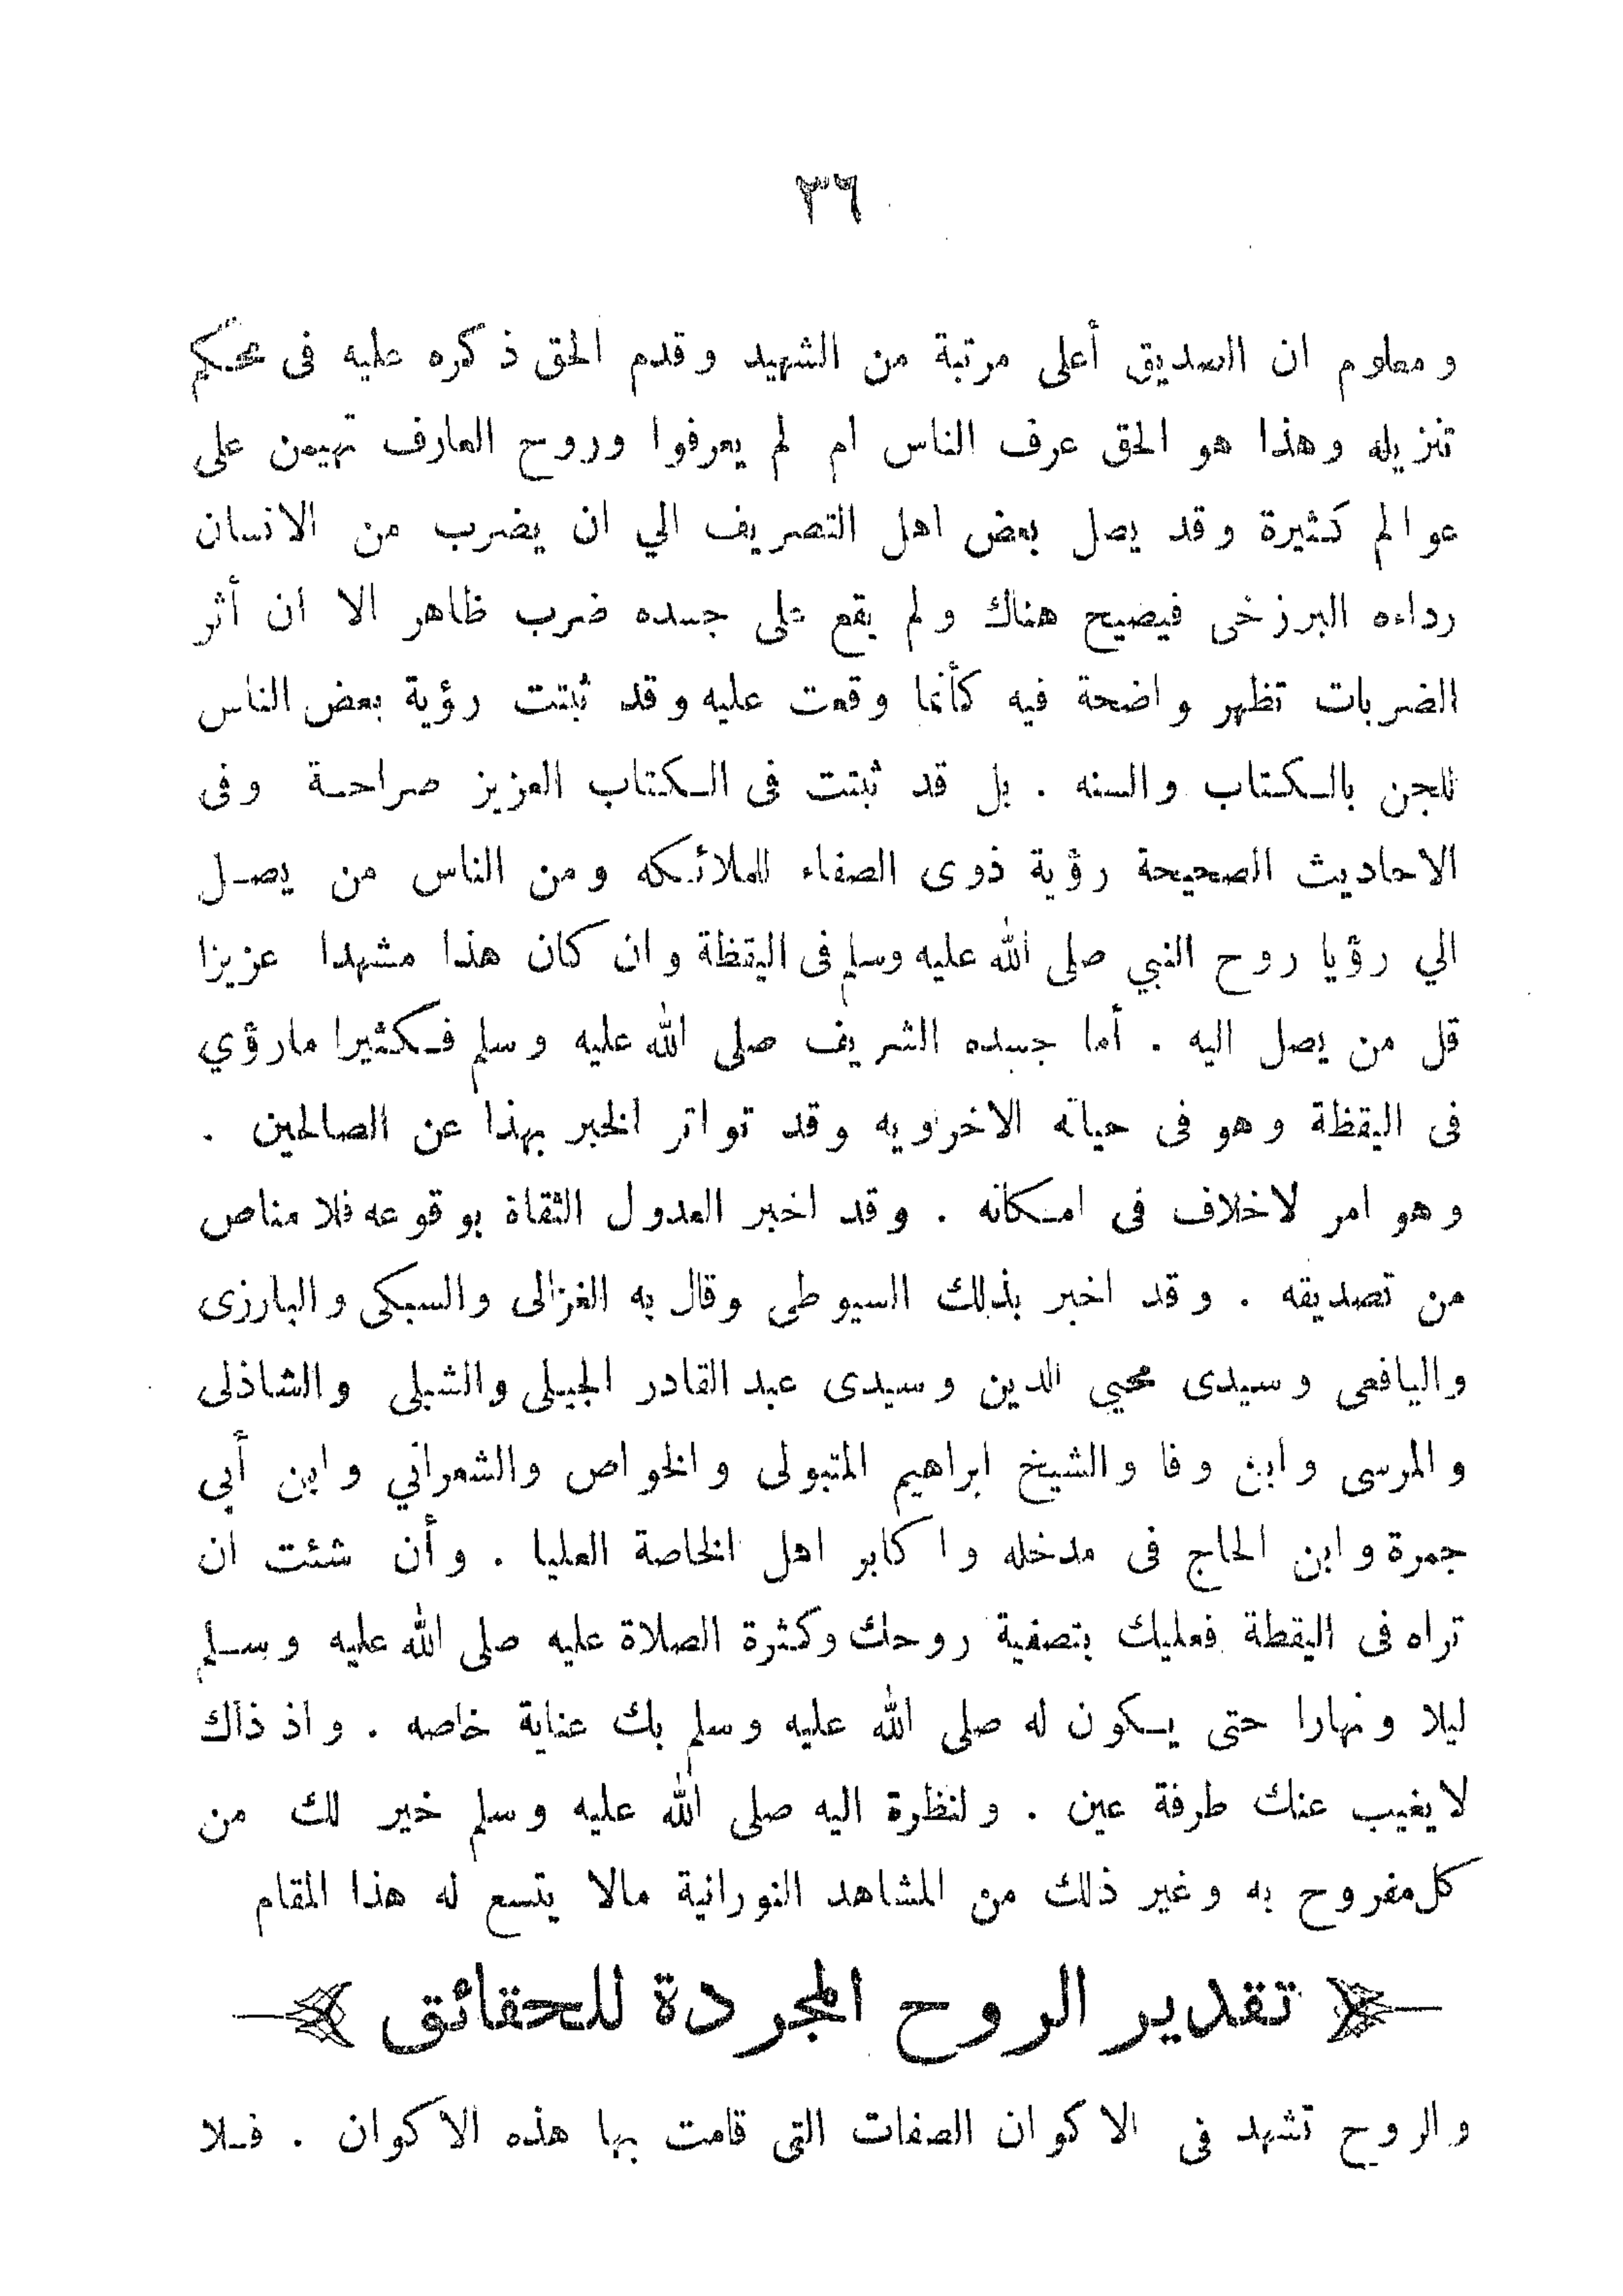 ٣٦
ومعلوم ان الصديق أعلى مرتبة من الشهيد وقدم الحق ذكره عليه فى محكم
تنزيله وهذا هو الحق عرف الناس ام لم يعرفوا وروح العارف تهيمن على
عوالم كثيرة وقد يصل بعض اهل التصريف الي ان يضرب من الانسان
رداءه البرزخى فيصيح هناك ولم يقع على جسده ضرب ظاهر الا ان أثر
الضربات تظهر واضحة فيه كأنما وقعت عليه وقد ثبتت رؤية بعض الناس
للجن بالكتاب والسنه . بل قد ثبتت فى الكتاب العزيز صراحة وفى
الاحاديث الصحيحة رؤية ذوى الصفاء للملائكه ومن الناس من يصل
الي رؤيا روح النبي صلى الله عليه وسلم فى اليقظة وان كان هذا مشهدا عزيزا
قل من يصل اليه . أما جسده الشريف صلى الله عليه وسلم فكثيرا مارؤي
فى اليقظة وهو فى حياته الاخرويه وقد تواتر الخبر بهذا عن الصالحين .
وهو امر لاخلاف فى امكانه . وقد اخبر العدول الثقاة بوقوعه فلا مناص
من تصديقه . وقد اخبر بذلك السيوطى وقال به الغزالى والسبكى والبارزى
واليافعى وسيدى محيي الدين وسيدى عبد القادر الجيلى والشبلى والشاذلى
والمرسى وابن وفا والشيخ ابراهيم المتبولى والخواص والشعراني وابن أبي
جمرة وابن الحاج فى مدخله واكابر اهل الخاصة العليا . وأن شئت ان
تراه فى اليقطة فعليك بتصفية روحك وكثرة الصلاة عليه صلى الله عليه وسلم
ليلا ونهارا حتى يكون له صلى الله عليه وسلم بك عناية خاصه . واذ ذاك
لايغيب عنك طرفة عين . ولنظرة اليه صلى الله عليه وسلم خير لك من
كل مفروح به وغير ذلك من المشاهد النورانية مالا يتسع له هذا المقام
﴿ تقدير الروح المجردة للحقائق ﴾
والروح تشهد في الاكوان الصفات التى قامت بها هذه الاكوان . فلا